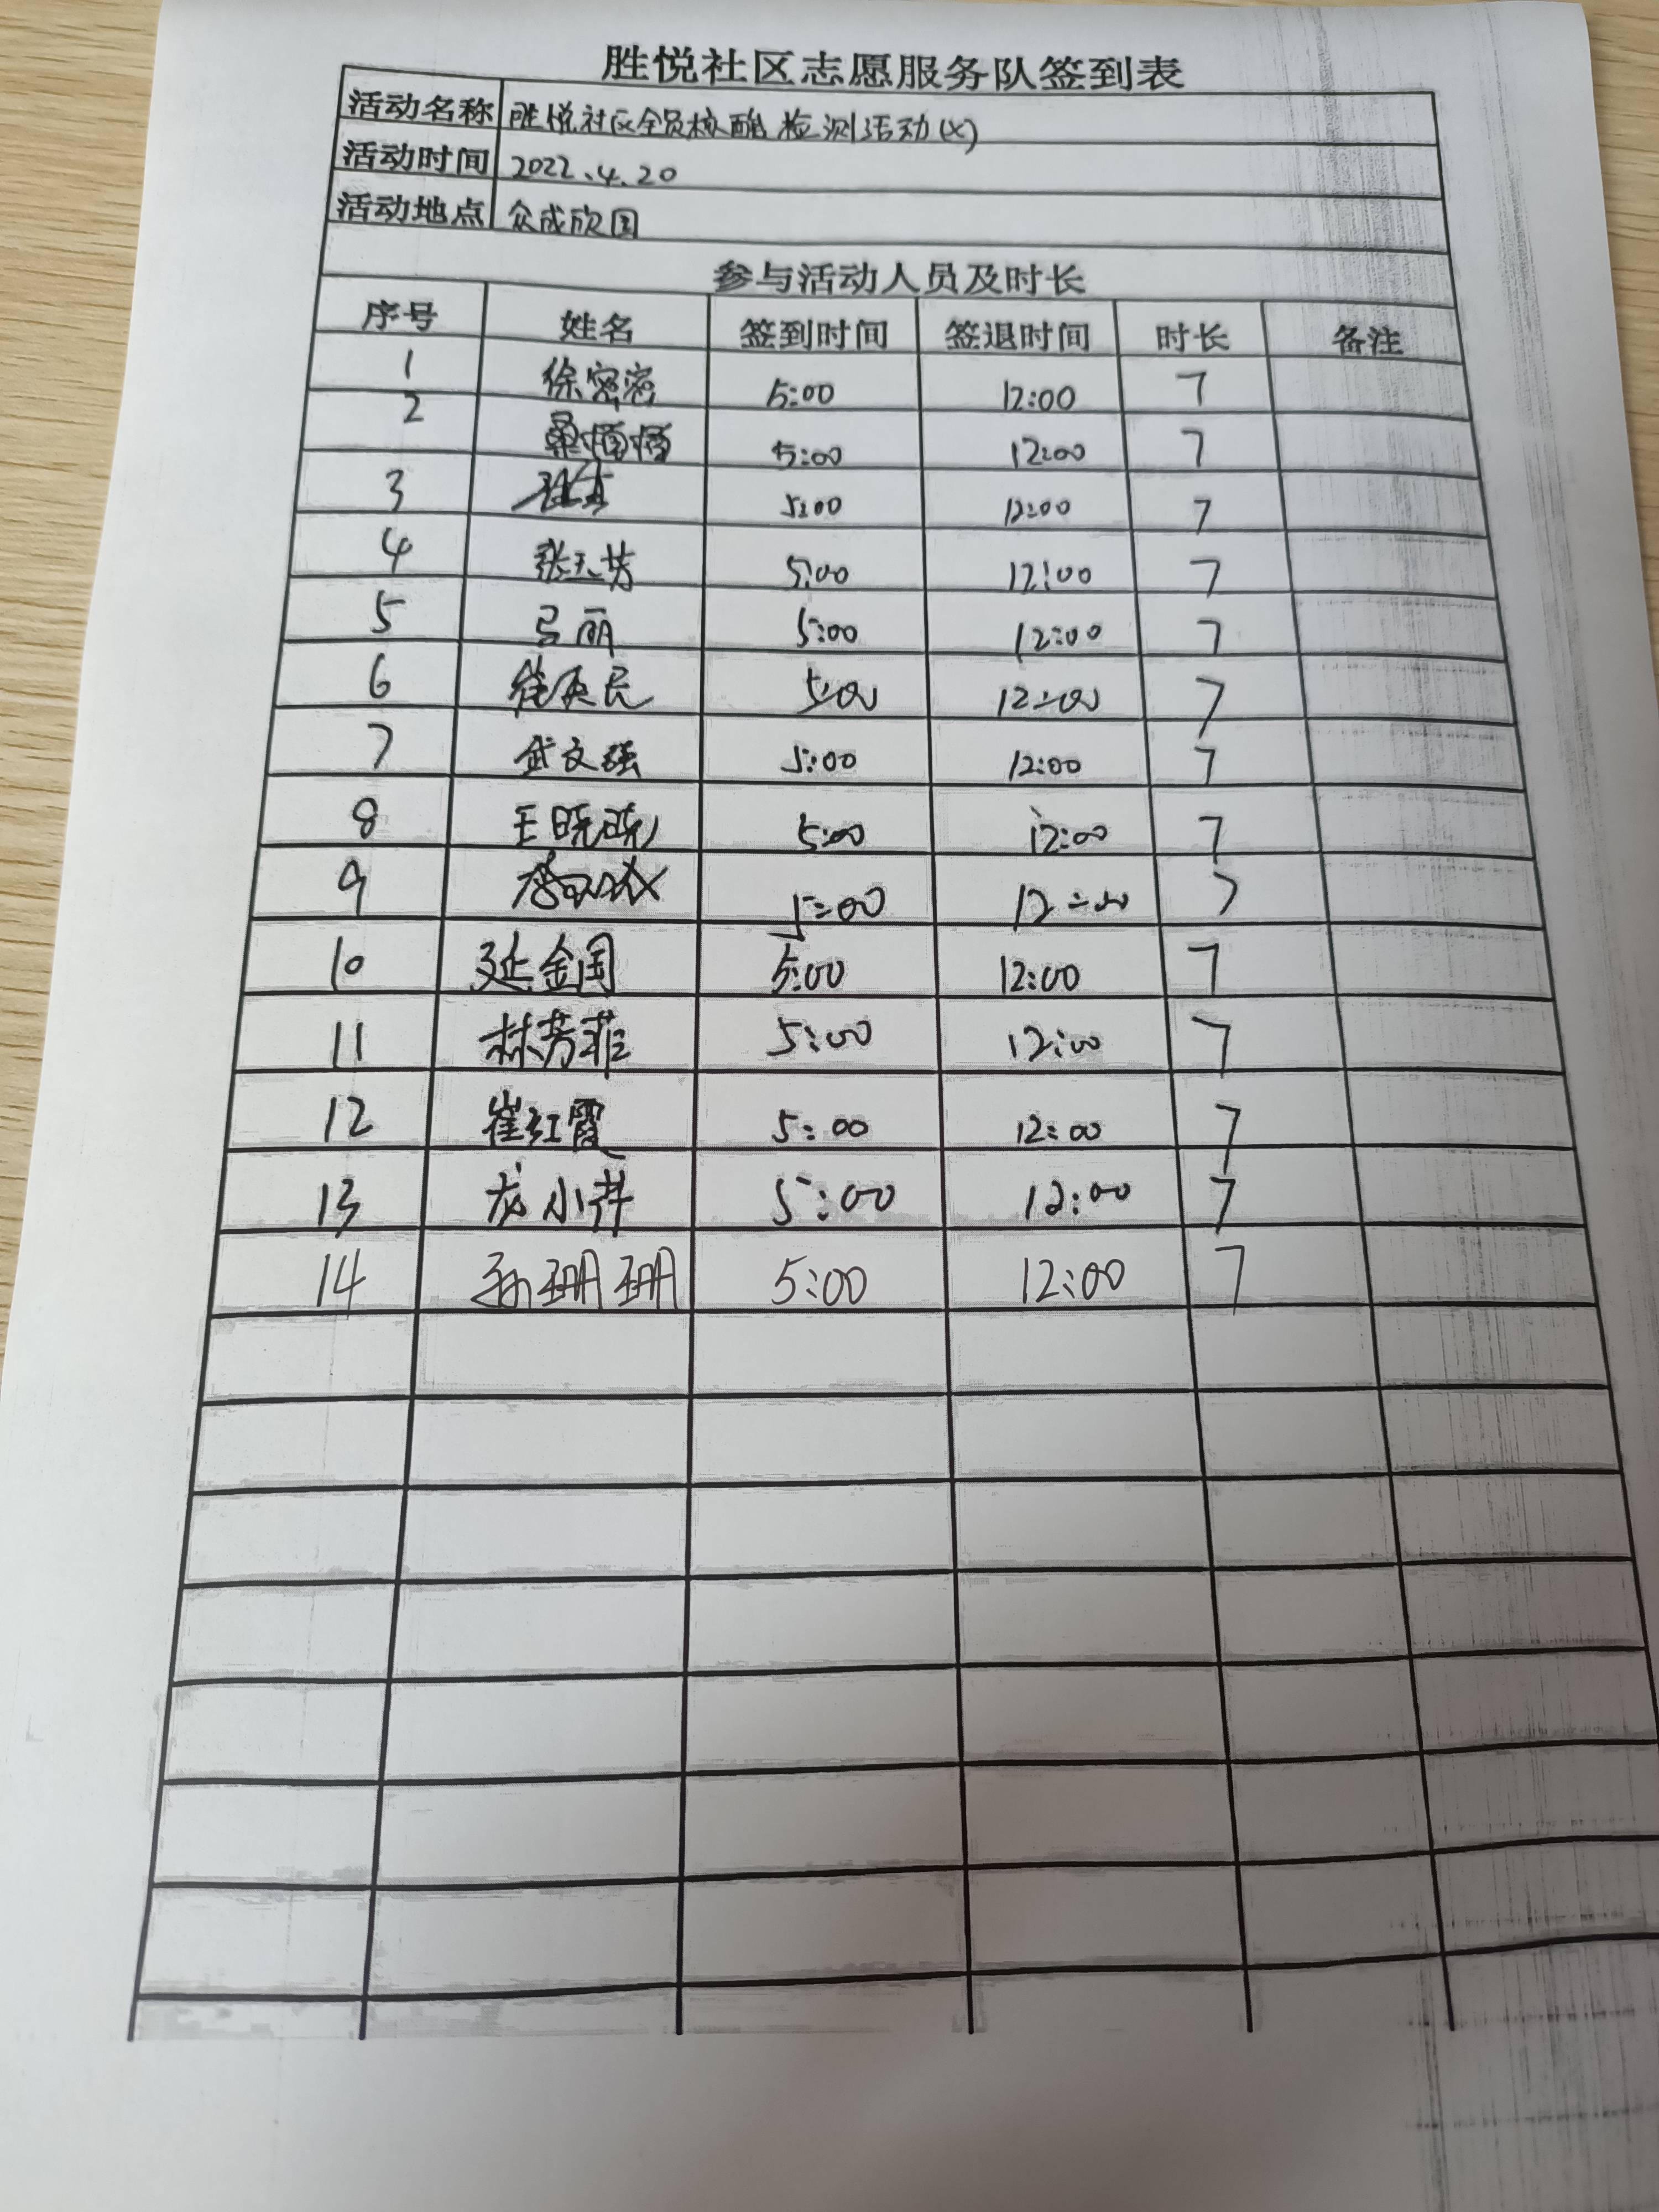 胜悦社区志愿服务队签到表
活动名称 胜悦社区全员核酸检测活动(x)
活动时间 2022.4.20
活动地点 众成欣园
参与活动人员及时长
序号 姓名 签到时间 签退时间 时长 备注
1 徐密密 5:00 12:00 7
2 5:00 12:00 7
3 5:00 12:00 7
4 5:00 12:00 7
5 5:00 12:00 7
6 5:00 12:00 7
7 武文强 5:00 12:00 7
8 王晓晓 5:00 12:00 7
9 5:00 12:00 7
10 延金国 5:00 12:00 7
11 林芳菲 5:00 12:00 7
12 崔红霞 5:00 12:00 7
13 5:00 12:00 7
14 孙珊珊 5:00 12:00 7